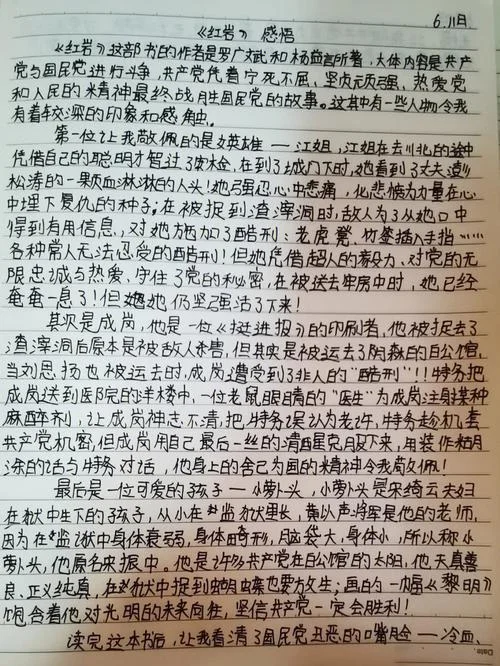 6.11日
《红岩》感悟
《红岩》这部书的作者是罗广斌和杨益言所著,大体内容是共产
党与国民党进行斗争,共产党凭着宁死不屈、坚贞顽强、热爱党
和人民的精神最终战胜国民党的故事。这其中有一些人物令我
有着较深的印象和感触。
第一位让我敬佩的是女英雄——江姐,江姐在去川北的途中
凭借自己的聪明才智过了安检,在到了城门下时,她看到了丈夫彭
松涛的一颗血淋淋的人头!她强忍心中悲痛,化悲愤为力量在心
中埋下复仇的种子;在被捉到渣滓洞时,敌人为了从她口中
得到有用信息,对她施加了酷刑:老虎凳、竹签插入手指……
各种常人无法忍受的酷刑!但她凭借超人的毅力、对党的无
限忠诚与热爱、守住了党的秘密,在被送去牢房中时,她已经
奄奄一息了!但她仍坚强活了下来!
其次是成岗,他是一位《挺进报》的印刷者,他被捉去了
渣滓洞后原本是被敌人杀害,但其实是被运去了阴森的白公馆,
当刘思扬也被运去时,成岗遭受到了非人的“酷刑”!!特务把
成岗送到医院的洋楼中,一位老鼠眼睛的“医生”为成岗注射某种
麻醉剂,让成岗神志不清,把特务误认为老许,特务趁机套
共产党机密,但成岗用自己最后一丝的清醒克服下来,用装作糊
涂的话与特务对话,他身上的舍己为国的精神令我敬佩!
最后是一位可爱的孩子——小萝卜头,小萝卜头是宋绮云夫妇
在狱中生下的孩子,从小在监狱里长,黄以声将军是他的老师,
因为在监狱中身体衰弱,身体畸形,脑袋大,身体小,所以称小
萝卜头,他原名宋振中。他是许多共产党在白公馆的太阳,他天真善
良、正义纯真,在狱中捉到虫也要放生;画的一幅《黎明》
饱含着他对光明的未来向往,坚信共产党一定会胜利!
读完这本书后,让我看清了国民党丑恶的嘴脸——冷血、
Date